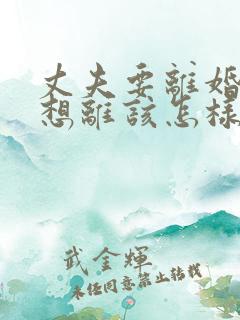 丈夫要離婚
想離該怎樣
武金輝
未经同意禁止转载